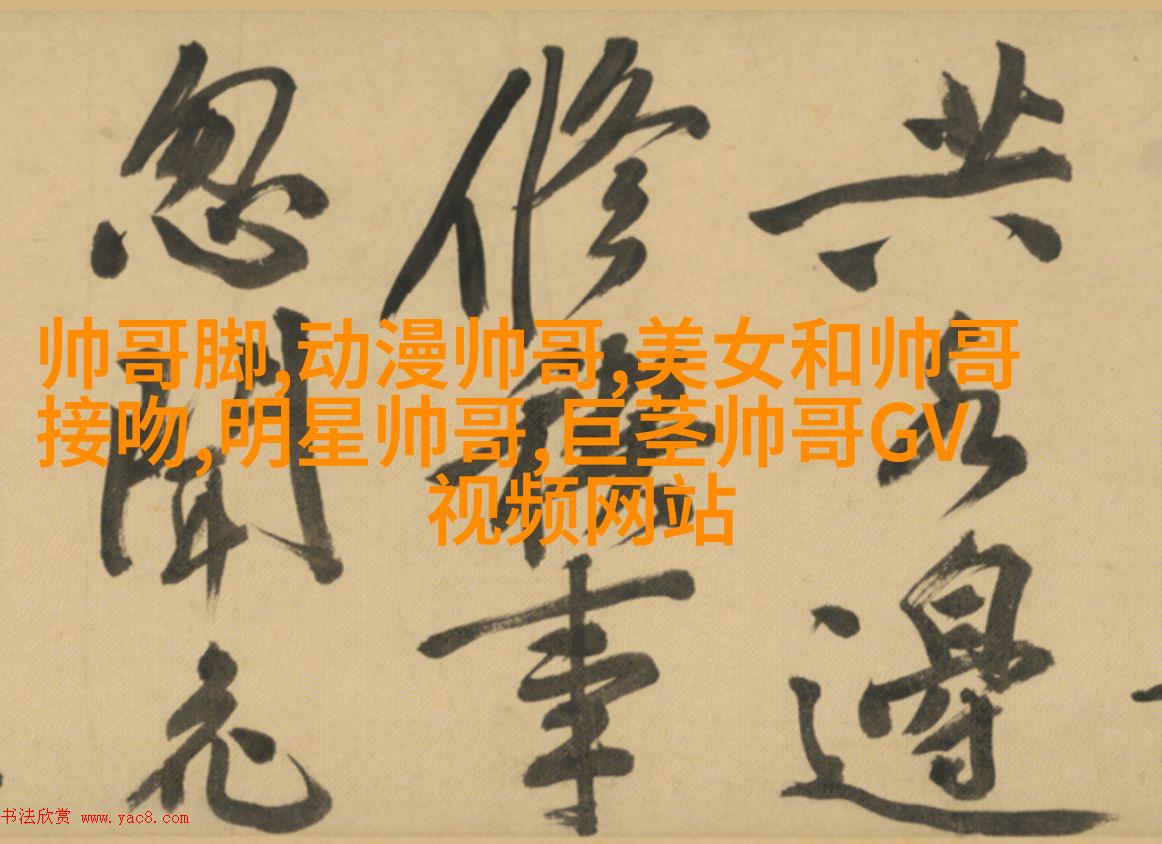 共
邊
修
事
忽聞
帅哥脚,动漫帅哥,美女和帅哥
接吻,明星帅哥,巨茎帅哥GV
视频网站
书法欣赏 www.yac8.com